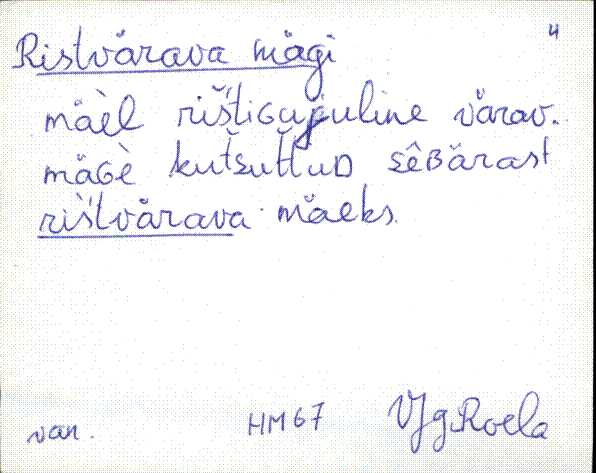 4
Ristvärava mägi
mäèl riš̌tiGujuline värav.
mäGè kuťsuťtuD sêBärast
riš̌tvärava mäeks.
van. HM 67 VJg Roela